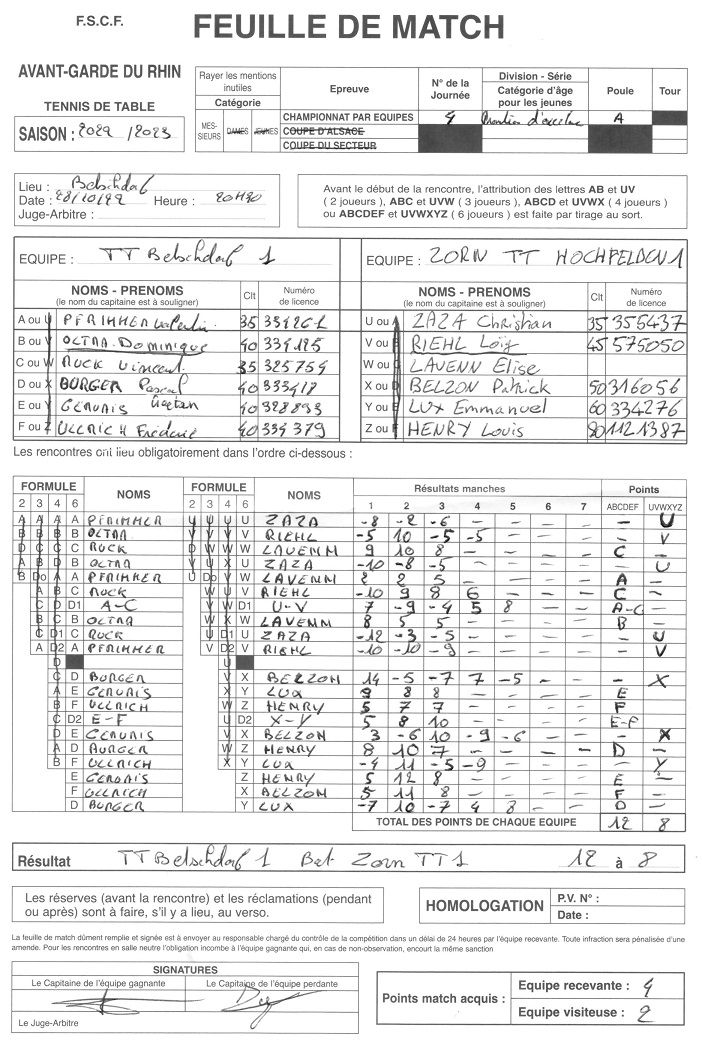 F.S.C.F.
FEUILLE DE MATCH
AVANT-GARDE DU RHIN
TENNIS DE TABLE
SAISON : 2022 / 2023
Rayer les mentions inutiles
Catégorie
MES-SIEURS DAMES JEUNES
Epreuve
CHAMPIONNAT PAR EQUIPES
COUPE D'ALSACE
COUPE DU SECTEUR
N° de la Journée
4
Division - Série
Catégorie d'âge pour les jeunes
Poule
A
Tour
Lieu : Betschdorf
Date : 28/10/22 Heure : 20H30
Juge-Arbitre :
Avant le début de la rencontre, l'attribution des lettres AB et UV
( 2 joueurs ), ABC et UVW ( 3 joueurs ), ABCD et UVWX ( 4 joueurs )
ou ABCDEF et UVWXYZ ( 6 joueurs ) est faite par tirage au sort.
EQUIPE : TT Betschdorf 1
EQUIPE : ZORN TT HOCHFELDEN 1
NOMS - PRENOMS (le nom du capitaine est à souligner) Clt Numéro de licence
NOMS - PRENOMS (le nom du capitaine est à souligner) Clt Numéro de licence
A ou U PFRIMMER Valentin 35
U ou A ZAZA Christian 35 355437
B ou V OLTRA Dominique 40 334185
V ou B RIEHL Loïy 45 575050
C ou W RUCK Vincent 35 325754
W ou C LAVENN Elise
D ou X BURGER Pascal 40 333418
X ou D BELZON Patrick 50 316056
E ou Y GERVAIS Gaetan 40 328893
Y ou E LUX Emmanuel 60 334276
F ou Z ULLRICH Frédéric 40 334379
Z ou F HENRY Louis 80 1121387
Les rencontres ont lieu obligatoirement dans l'ordre ci-dessous :
FORMULE NOMS FORMULE NOMS Résultats manches Points
2 3 4 6 2 3 4 6 1 2 3 4 5 6 7 ABCDEF UVWXYZ
A A A A PFRIMMER U U U U ZAZA -8 -2 -6 - - - - - U
B B B B OLTRA V V V V RIEHL -5 10 -5 -5 - - - - V
D C C C RUCK D W W W LAVENN 9 10 8 - - - - C -
A B D B OLTRA V U X U ZAZA -10 -8 -5 - - - - - U
B Do A A PFRIMMER U Do V W LAVENN 8 2 5 - - - - A -
A B C RUCK W U V RIEHL -10 9 8 6 - - - C -
C D D1 A-C U W W D1 U-V 7 -9 -4 5 8 - - A-C -
B C B OLTRA W X W LAVENN 8 5 5 - - - - B -
C D1 C RUCK U D1 U ZAZA -12 -3 -5 - - - - - U
A D2 A PFRIMMER V D2 V RIEHL -10 -10 -9 - - - - - V
D U
C D BURGER V X BELZON 14 -5 -7 7 -5 - - - X
A E GERVAIS X Y LUX 9 8 8 - - - - E -
B F ULLRICH W Z HENRY 5 7 7 - - - - F -
C D2 E-F U D2 X-Y 5 8 10 - - - - E-F -
D E GERVAIS V X BELZON 3 -6 10 -9 -6 - - - X
A D BURGER W Z HENRY 8 10 7 - - - - D -
B F ULLRICH X Y LUX -4 11 -5 -9 - - - - Y
E GERVAIS Z HENRY 5 12 8 - - - - E -
F ULLRICH X BELZON 5 11 8 - - - - F -
D BURGER Y LUX -7 10 -7 4 8 - - D -
TOTAL DES POINTS DE CHAQUE EQUIPE 12 8
Résultat TT Betschdorf 1 Bat Zorn TT 1 12 à 8
Les réserves (avant la rencontre) et les réclamations (pendant
ou après) sont à faire, s'il y a lieu, au verso.
HOMOLOGATION
P.V. N° :
Date :
La feuille de match dûment remplie et signée est à envoyer au responsable chargé du contrôle de la compétition dans un délai de 24 heures par l'équipe recevante. Toute infraction sera pénalisée d'une
amende. Pour les rencontres en salle neutre l'obligation incombe à l'équipe gagnante qui, en cas de non-observation, encourt la même sanction
SIGNATURES
Le Capitaine de l'équipe gagnante Le Capitaine de l'équipe perdante
Le Juge-Arbitre
Points match acquis :
Equipe recevante : 4
Equipe visiteuse : 2